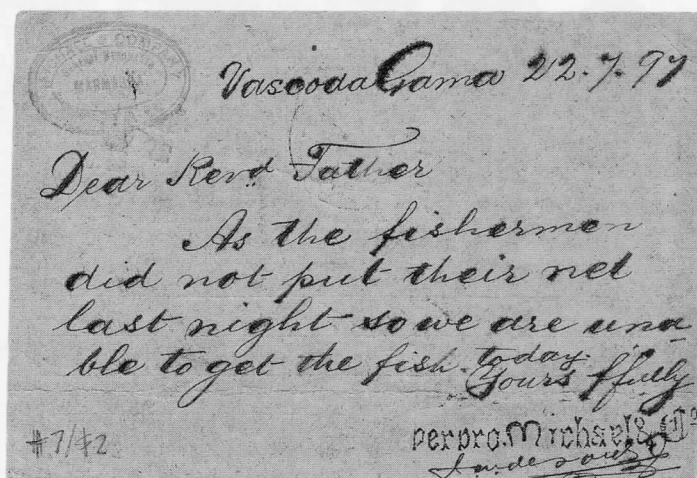 MICHAEL & COMPANY
MARMAGOA
Vasco da Gama 22.7.97
Dear Revd Father
As the fishermen
did not put their net
last night so we are una
ble to get the fish today.
Yours ffully
per pro. Michael & Co
#7/$2